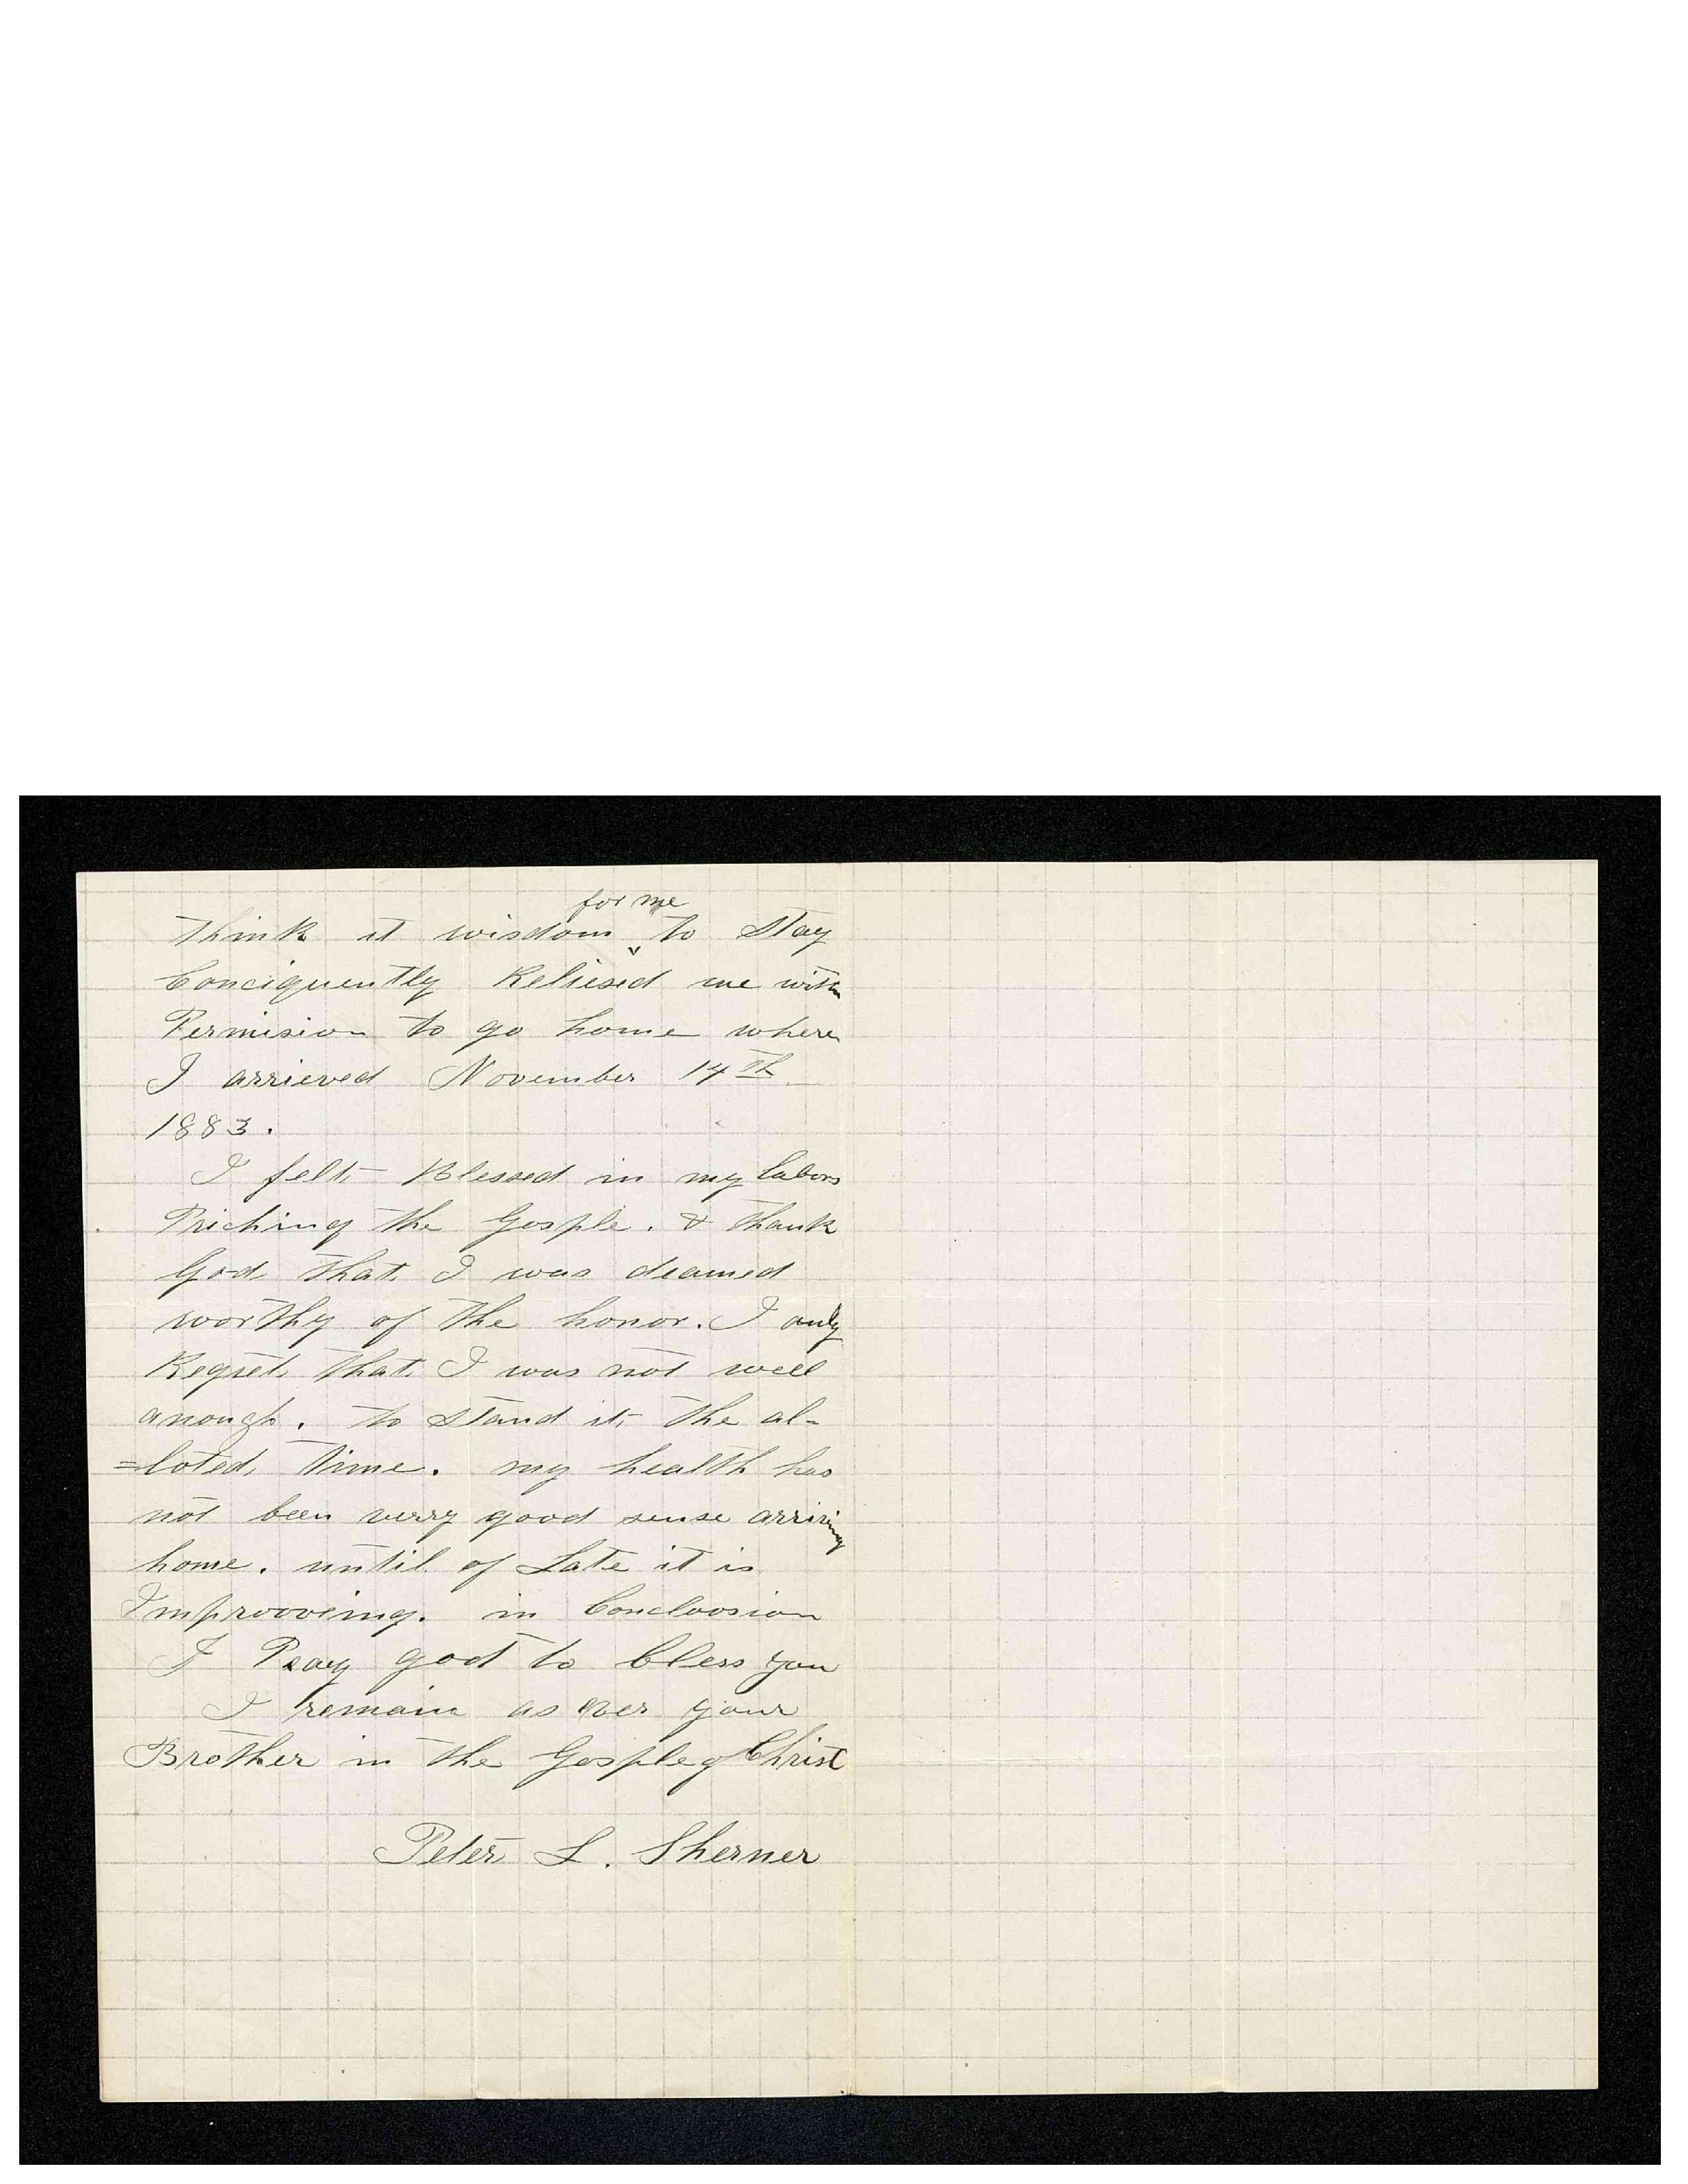 think it wisdom for me to stay
Conciquently Reliesed me with
Permision to go home where
I arrieved November 14th
1883.
I felt Blessed in my labors
Priching the Gosple. & thank
God that I was deamed
worthy of the honor. I only
Regret that I was not well
anough. to stand it the al-
=loted time. my health has
not been verry good sense arriving
home. until of Late it is
Improoveing. in Concloosion
I Pray god to bless you
I remain as ever your
Brother in the Gosple of Christ
Peter L. Sherner